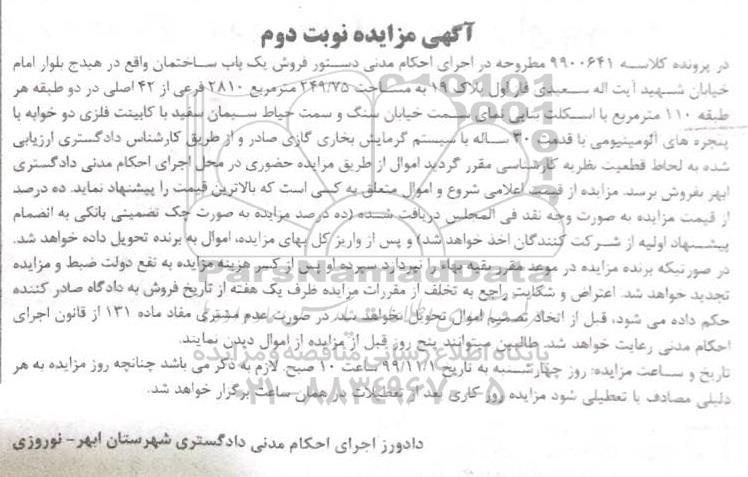 آگهی مزایده نوبت دوم
در پرونده کلاسه ۹۹۰۰۶۴۱ مطروحه در اجرای احکام مدنی دستور فروش یک باب ساختمان واقع در هیدج بلوار امام
خیابان شهید آیت اله سعیدی فاز اول پلاک ۱۹ به مساحت ۲۴۹/۷۵ مترمربع ۲۸۱۰ فرعی از ۴۲ اصلی در دو طبقه هر
طبقه ۱۱۰ مترمربع با اسکلت بنایی نمای سمت خیابان سنگ و سمت حیاط سیمان سفید با کابینت فلزی دو خوابه با
پنجره های آلومینیومی با قدمت ۳۰ ساله با سیستم گرمایش بخاری گازی صادر و از طریق کارشناس دادگستری ارزیابی
شده به لحاظ قطعیت نظریه کارشناسی مقرر گردید اموال از طریق مزایده حضوری در محل اجرای احکام مدنی دادگستری
ابهر بفروش برسد. مزایده از قیمت اعلامی شروع و اموال متعلق به کسی است که بالاترین قیمت را پیشنهاد نماید. ده درصد
از قیمت مزایده به صورت وجه نقد فی المجلس دریافت شده (ده درصد مزایده به صورت چک تضمینی بانکی به انضمام
پیشنهاد اولیه از شرکت کنندگان اخذ خواهد شد) و پس از واریز کل بهای مزایده، اموال به برنده تحویل داده خواهد شد.
در صورتیکه برنده مزایده در موعد مقرر بقیه بها را نپردازد سپرده او پس از کسر هزینه مزایده به نفع دولت ضبط و مزایده
تجدید خواهد شد. اعتراض و شکایت راجع به تخلف از مقررات مزایده ظرف یک هفته از تاریخ فروش به دادگاه صادر کننده
حکم داده می شود، قبل از اتخاذ تصمیم اموال تحویل نخواهد شد. در صورت عدم مشتری مفاد ماده ۱۳۱ از قانون اجرای
احکام مدنی رعایت خواهد شد. طالبین میتوانند پنج روز قبل از مزایده از اموال دیدن نمایند.
تاریخ و ساعت مزایده: روز چهارشنبه به تاریخ ۹۹/۱۱/۱ ساعت ۱۰ صبح. لازم به ذکر می باشد چنانچه روز مزایده به هر
دلیلی مصادف با تعطیلی شود مزایده روز کاری بعد از تعطیلات در همان ساعت برگزار خواهد شد.
دادورز اجرای احکام مدنی دادگستری شهرستان ابهر- نوروزی
ParsNamadData
پایگاه اطلاع رسانی مناقصه و مزایده
۰۲۱-۸۸۳۴۹۶۷۰-۵